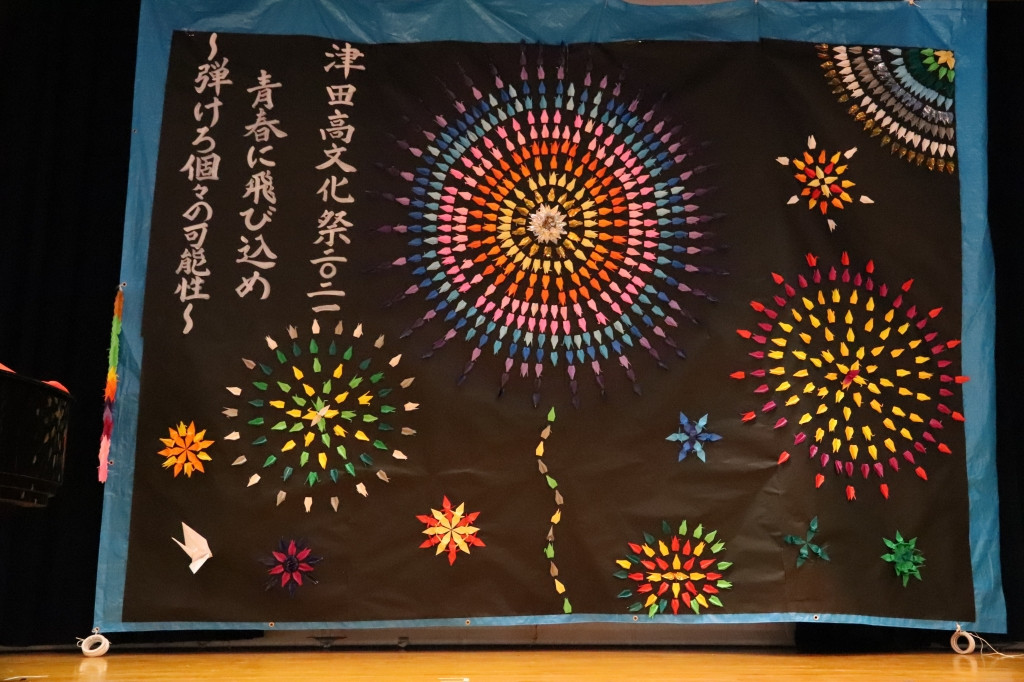 津田高文化祭二〇二一
青春に飛び込め
～弾けろ個々の可能性～